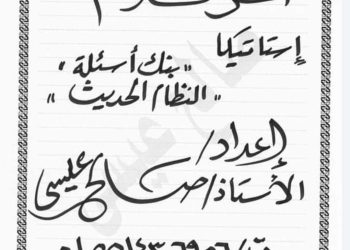 إستاتيكا
"بنك أسئلة"
"النظام الحديث"
إعداد/
الأستاذ/ صالح عيسى